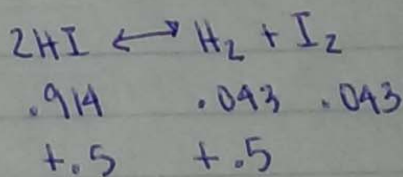 2HI ⟷ H₂ + I₂
.914 .043 .043
+.5 +.5